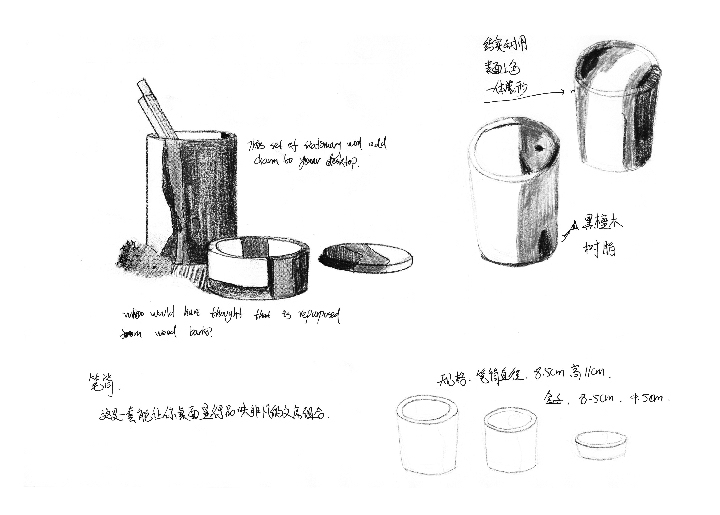 结实耐用
桌面上色
一体成形
This set of stationary will add
charm to your desktop.
黑檀木
树脂
who would have thought that is repurposed
from wood barks?
笔筒.
这是一套能让你桌面显得品味非凡的文具组合.
规格. 笔筒直径. 8.5cm 高11cm.
盒子. 8.5cm.